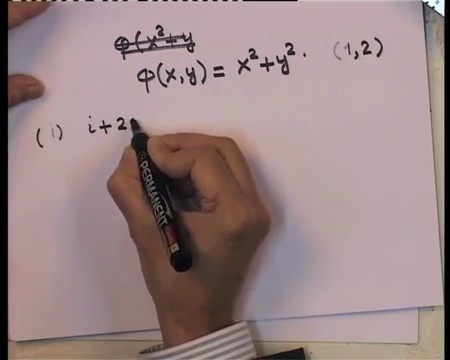 φ(x²+y
φ(x,y) = x²+y². (1,2)
(i) i+2
PERMANENT